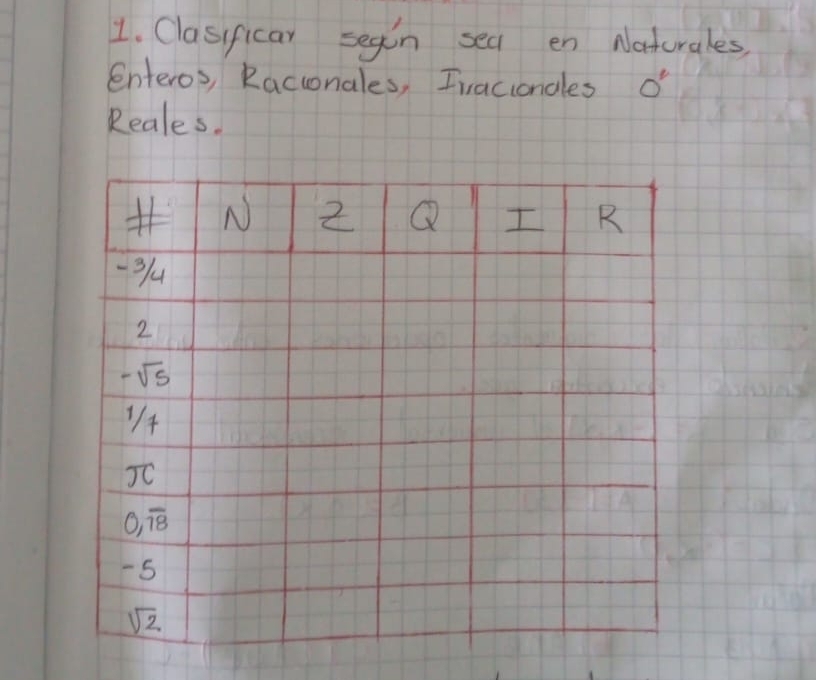 1. Clasificar según sea en Naturales,
Enteros, Racionales, Irracionales Ó
Reales.
# N Z Q I R
-3/4
2
-√5
1/7
π
0,1̅8̅
-5
√2